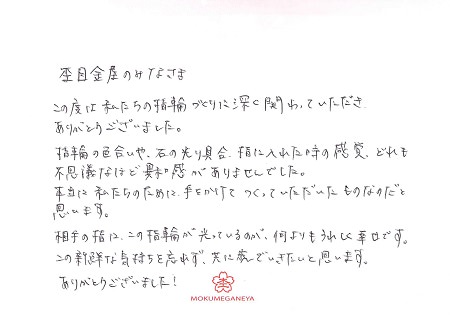 杢目金屋のみなさま
この度は私たちの指輪づくりに深く関わっていただき
ありがとうございました。
指輪の色合いや、石の光り具合、指に入れた時の感覚、どれも
不思議なほど異和感がありませんでした。
本当に私たちのために、手をかけてつくっていただいたものなのだと
思います。
相手の指に、この指輪が光っているのが、何よりもうれしく幸せです。
この新鮮な気持ちを忘れず、共に歩んでいきたいと思います。
ありがとうございました!
MOKUMEGANEYA